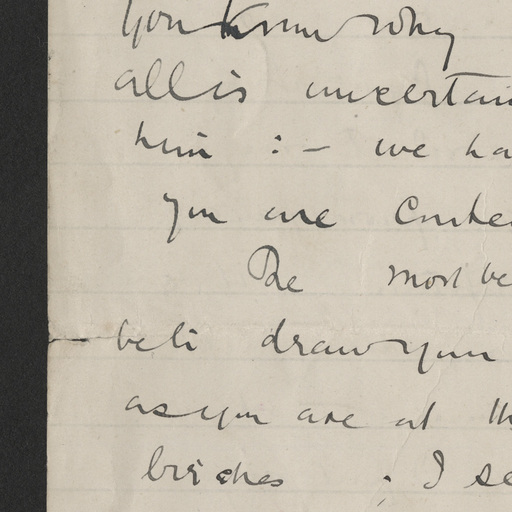 you know why
all is uncertain
him : – we ha
you are conte
The most be
belt draw your
as you are at th
britches . I se